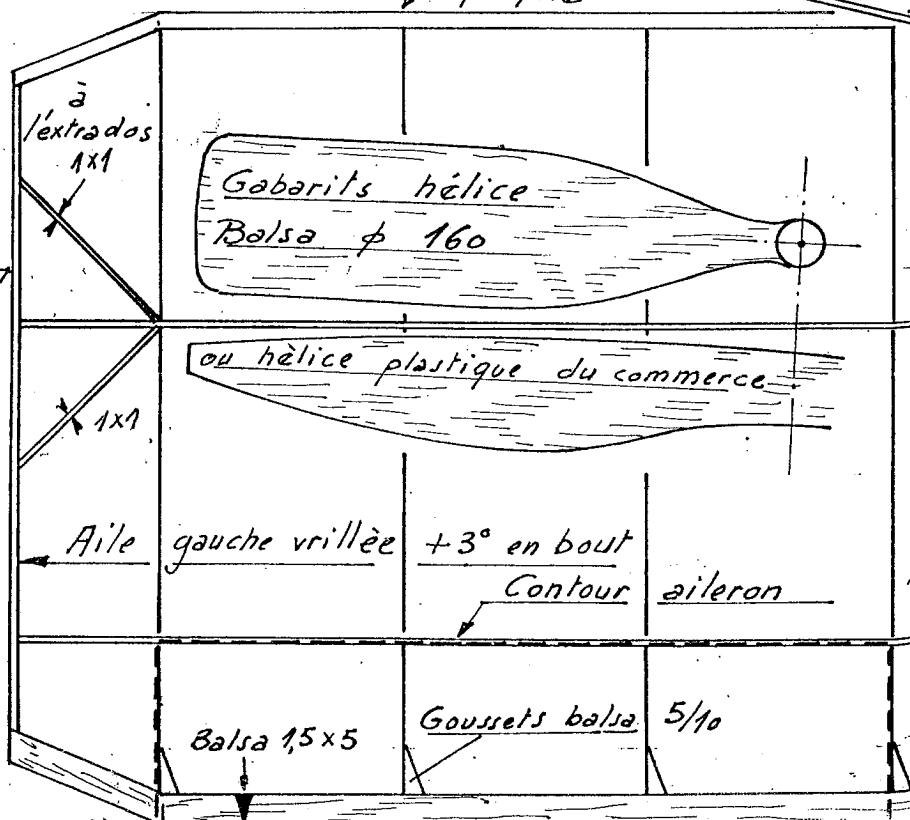 à
l'extrados
1x1
Gabarits hélice
Balsa ϕ 160
ou hèlice plastique du commerce
1x1
Aile gauche vrillèe +3° en bout
Contour aileron
Balsa 1,5x5
Goussets balsa 5/10